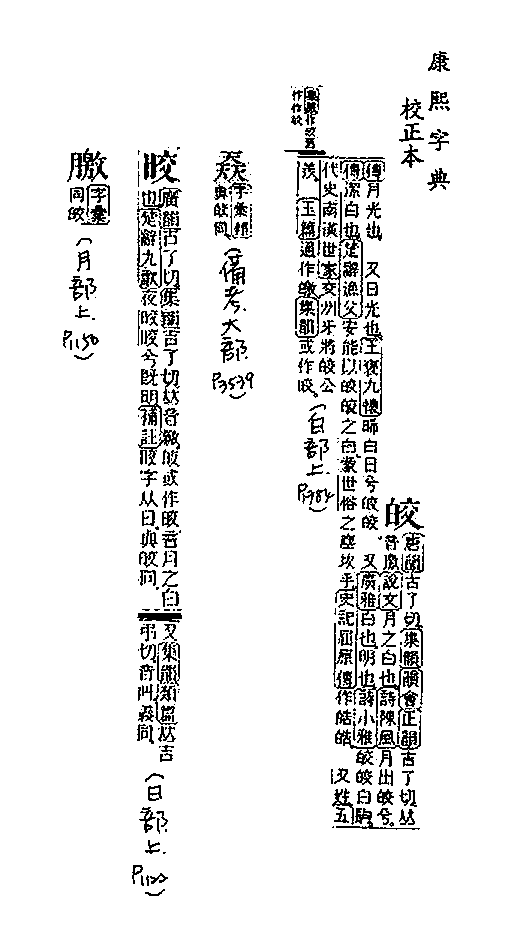 康熙字典
校正本
皎
唐韻古了切集韻韻會正韻古了切𠀤
音皦說文月之白也詩陳風月出皎兮
又廣雅白也明也詩小雅皎皎白駒
傳月光也 又日光也王褒九懷晞白日兮皎皎
傳潔白也楚辭漁父安能以皎皎之白蒙世俗之塵埃乎史記屈原傳作皓皓 又姓五
代史南漢世家交州牙將皎公
羨 玉篇通作皦集韻或作晈
(白部上 P.782)
字彙補
與皎同
(備考大部 P3539)
晈
廣韻古了切集韻吉了切𠀤音皦皎或作晈音月之白
也楚辭九歌夜晈晈兮旣明補註晈字从日與皎同
又集韻類篇𠀤吉
弔切音叫義同
(日部上 P.1122)
字彙
同皎
(月部上 P.1150)